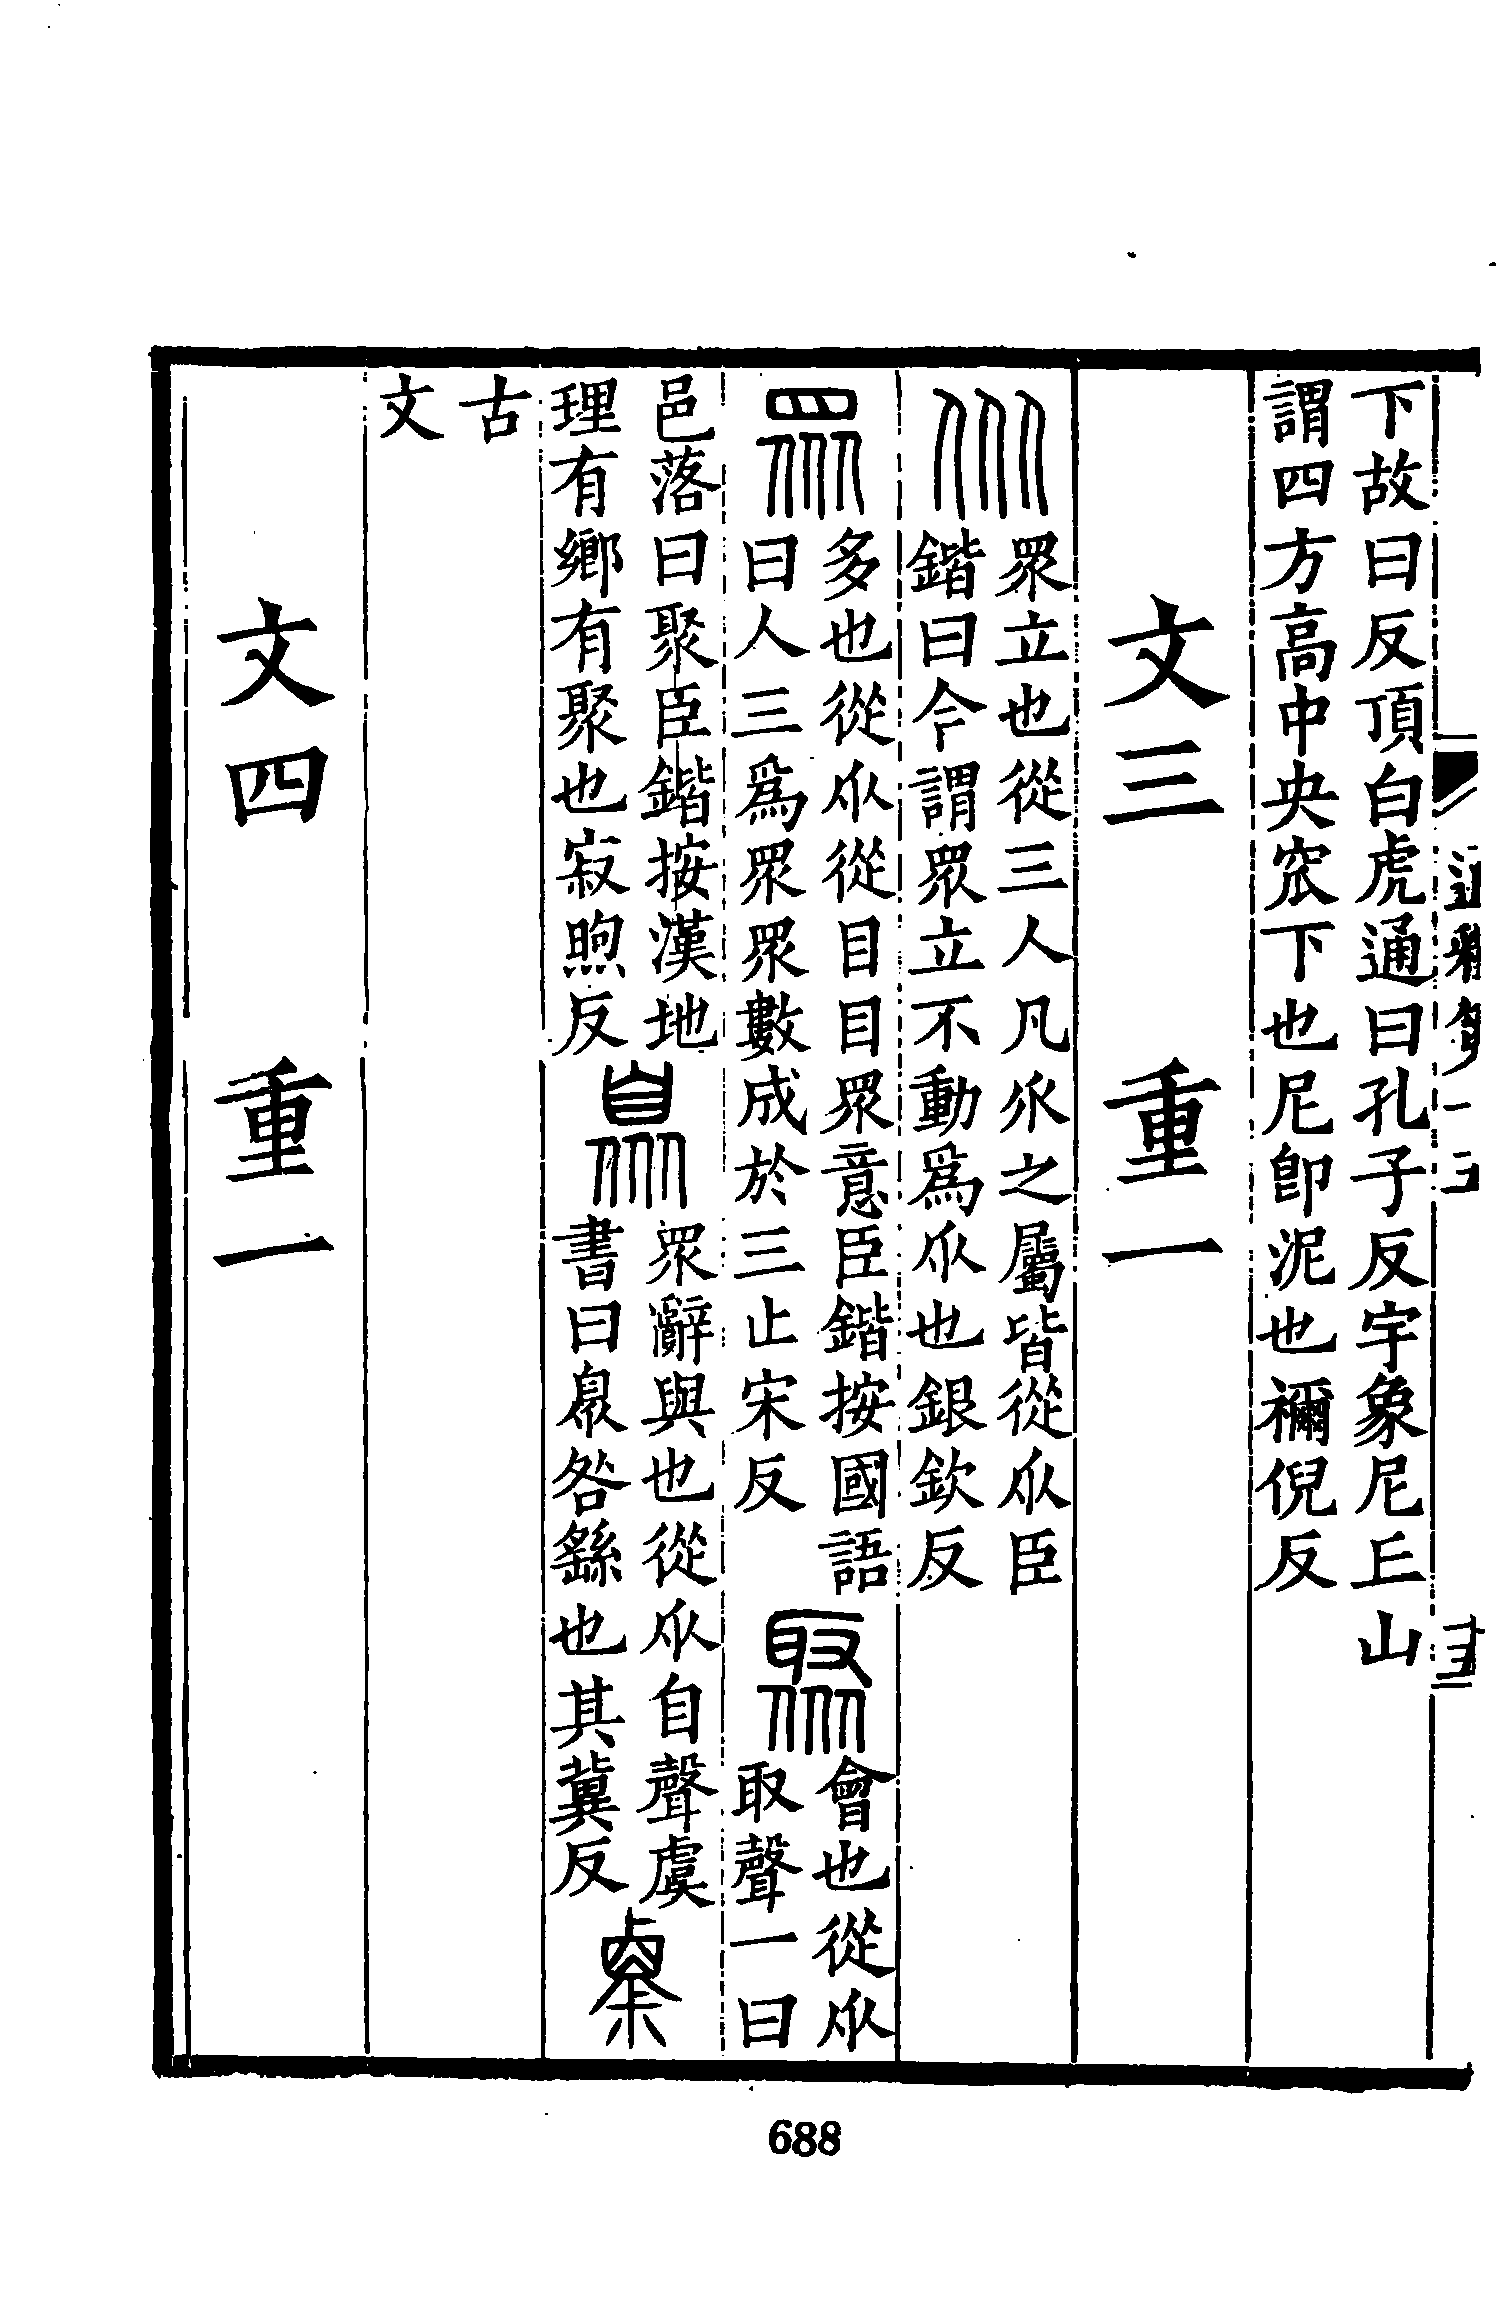 下故曰反頂白虎通曰孔子反宇象尼丘山
謂四方高中央窊下也尼即泥也禰倪反
文三 重一
眾立也從三人凡㐺之屬皆從㐺臣
鍇曰今謂眾立不動為㐺也銀欽反
多也從㐺從目目眾意臣鍇按國語
曰人三為眾眾數成於三止宋反
會也從㐺
取聲一曰
邑落曰聚臣鍇按漢地
理有鄉有聚也寂煦反
眾辭與也從㐺自聲虞
書曰臮咎繇也其冀反
古
文
文四 重一
688